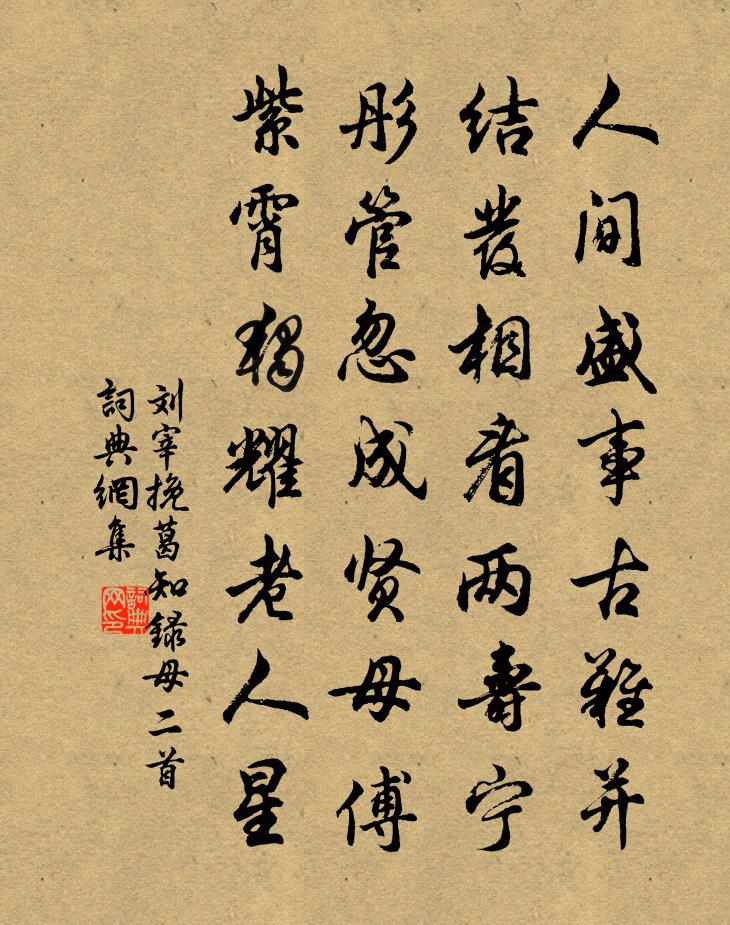 人间盛事古难并
结发相看两寿宁
彤管忽成贤母傅
紫霄独耀老人星
刘宰挽葛知録母二首
詞典網集
詞典
网印